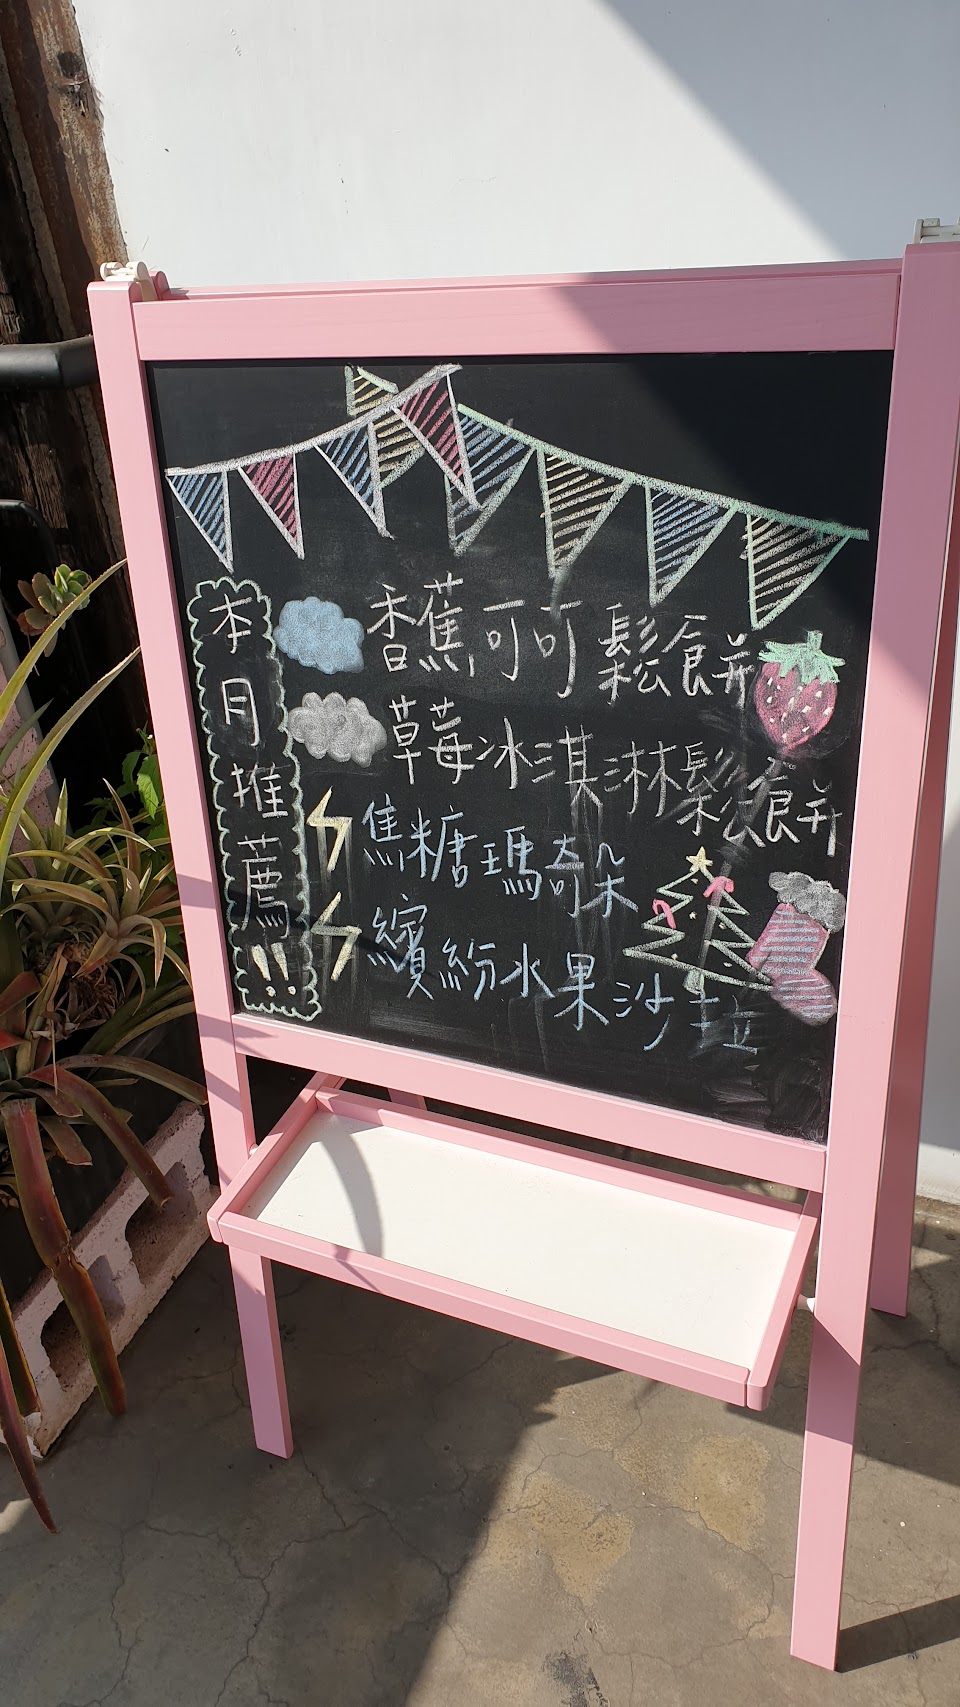 本月推薦!!
香蕉可可鬆餅
草莓冰淇淋鬆餅
焦糖瑪奇朵
繽紛水果沙拉